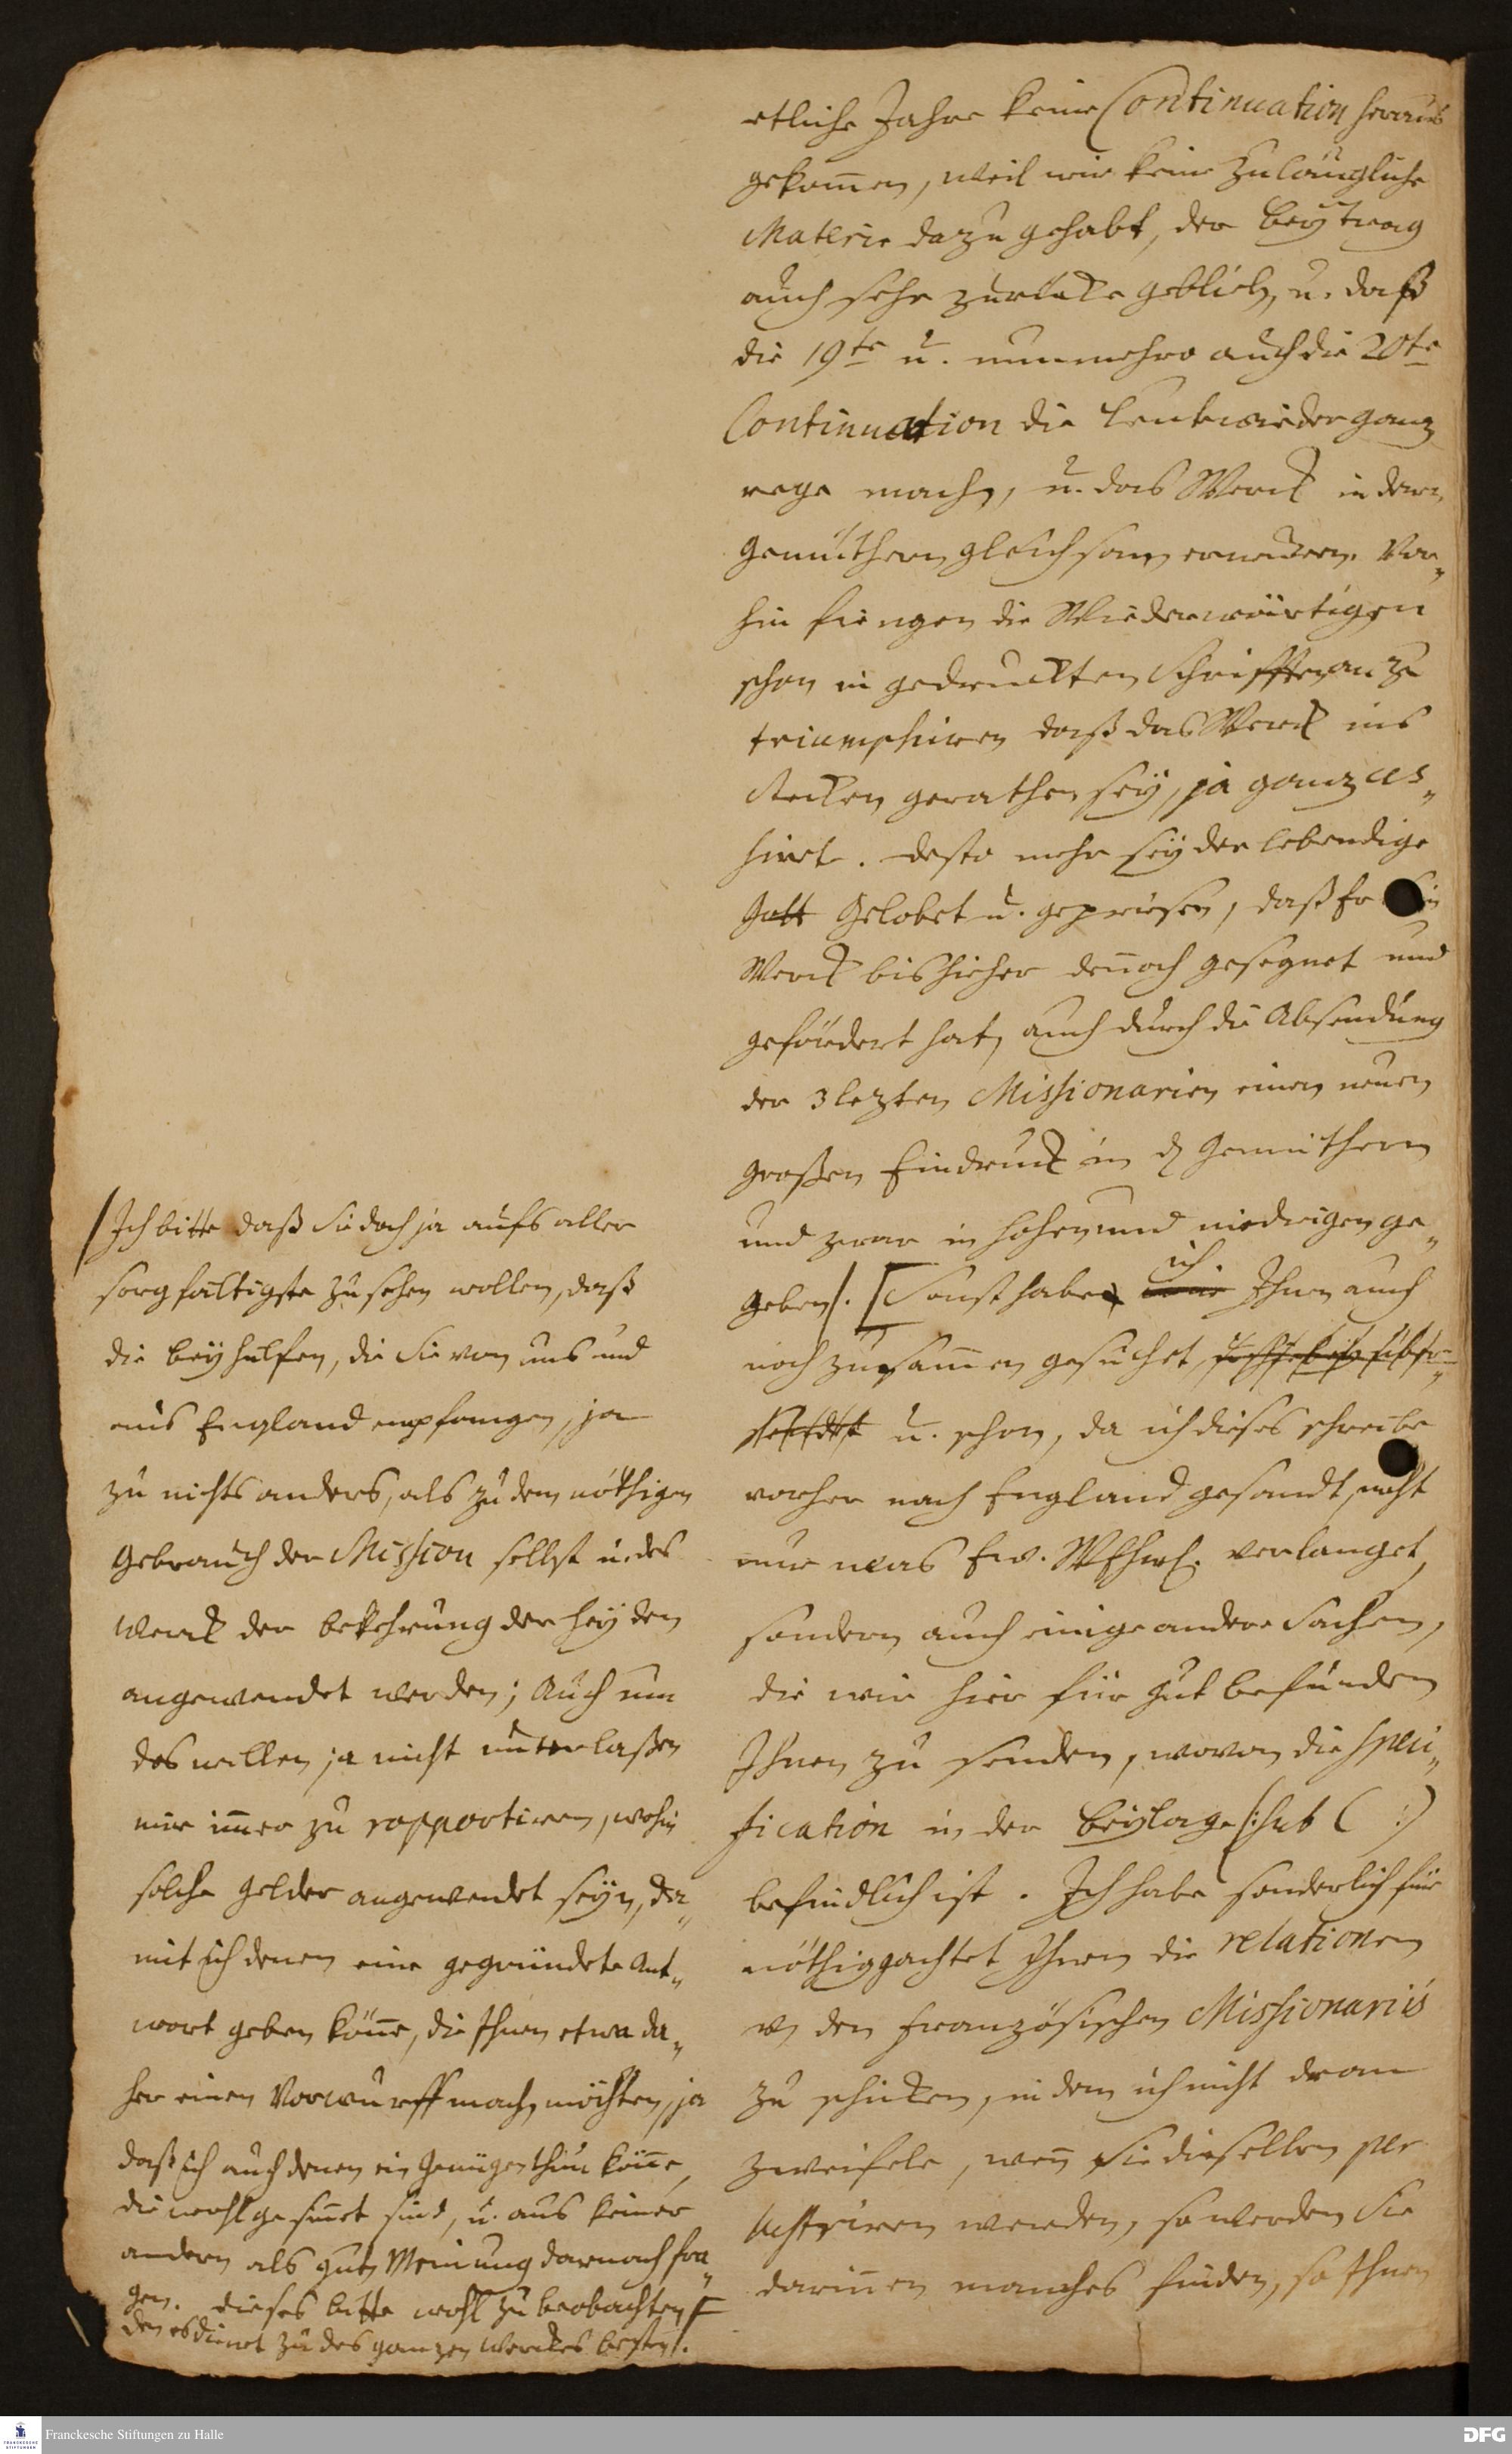 etliche Jahre keine Continuation heraus
gekom̅en, weil wir keine zulängliche
Materie dazu gehabt, der Beytrag
auch sehr zurücke geblieb, u. daß
die 19te u. nunmehro auch die 20te
Continuation die Leute wieder ganz
rege mach, u. das Werck in deren
Gemüthern gleichsam erneuern. Vor„
hin fiengen die Wiederwärtigen
schon in gedruckten Schrifften an zu
triumphiren daß das Werck ins
stecken gerathen sey, ja ganz ces„
sire. desto mehr sey der lebendige
Gott Gelobet u. gepriesen, daß Er sein
Werck bishieher den̅och gesegnet und
gefördert hat, auch durch die Absendung
der 3 lezten Missionarien einen neuen
großen Eindruck in d Gemüthern
und zwar in hohen und niedrigen ge„
geben/. [Sonst habe ich Ihnen auch
noch zusam̅en gesuchet,
u. schon, da ich dieses schreibe
vorher nach England gesandt, nicht
nur was Ew. WEhrw. verlanget,
sondern auch einige andere Sachen,
die wir hier für gut befunden
Ihnen zu senden, wovon die Speci„
fication in der Beylage /:sub ( :)
befindlich ist. Ich habe sonderlich für
nöthig gachtet Ihnen die relationen
v. den Französischen Missionariis
zu schicken, indem ich nicht dran
zweifele, wen̅ Sie dieselben per
lustriren werden, so werden Sie
darin̅en manches finden, so Ihnen
/Ich bitte daß Sie doch ja aufs aller
sorgfältigste zusehen wollen, daß
die beyhülfen, die Sie von uns und
aus England empfangen, ja
zu nichts anders, als zu dem nöthigen
Gebrauch der Mission selbst u. des
Werck der bekehrung der Heyden
angewendet werden; Auch um
des willen ja nicht unterlaßen
mir im̅er zu rapportiren, wohin
solche Gelder angewendet seyn, da„
mit ich denen eine gegründete Ant„
wort geben kön̅e, die Ihnen etwa da„
her einen Vorwurff mach möchten, ja
daß ich auch denen ein Genügen thun kön̅e,
die wohlgesin̅et sind, u. aus keiner
andern als guten Meinung darnach fra„
gen. dieses bitte wohl zu beobachten
den es dienet zu des ganzen Werckes besten/.
Franckesche Stiftungen zu Halle
DFG